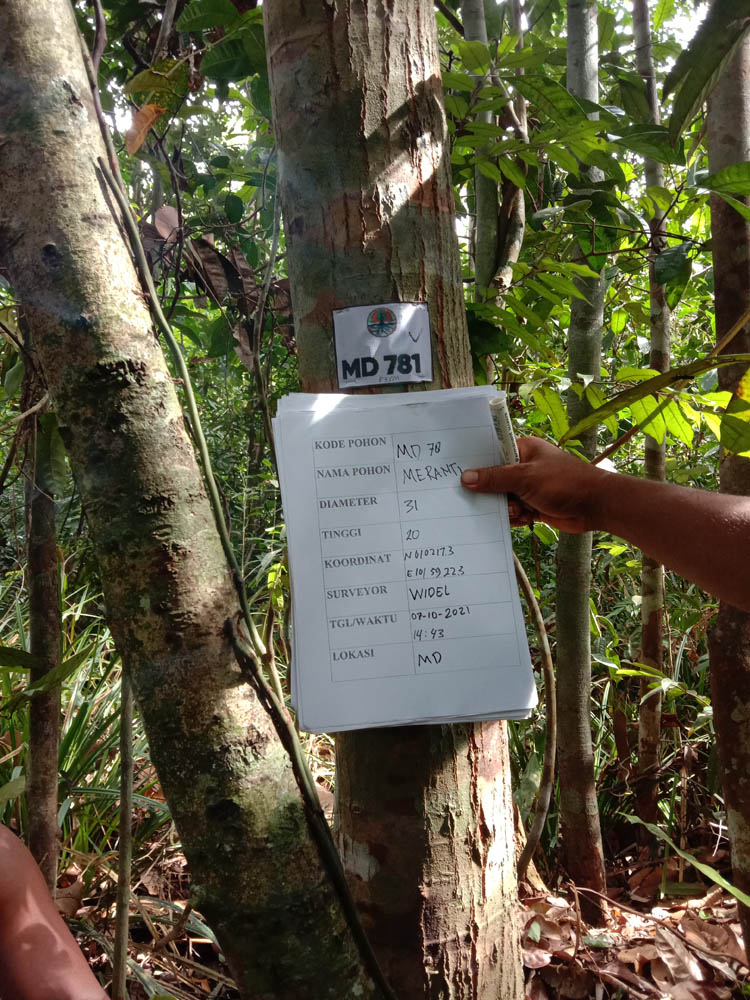 MD 781
KODE POHON MD 78
NAMA POHON MERANTI
DIAMETER 31
TINGGI 20
KOORDINAT N 0102173
E 101 59 223
SURVEYOR WIDEL
TGL/WAKTU 07-10-2021
14:43
LOKASI MD